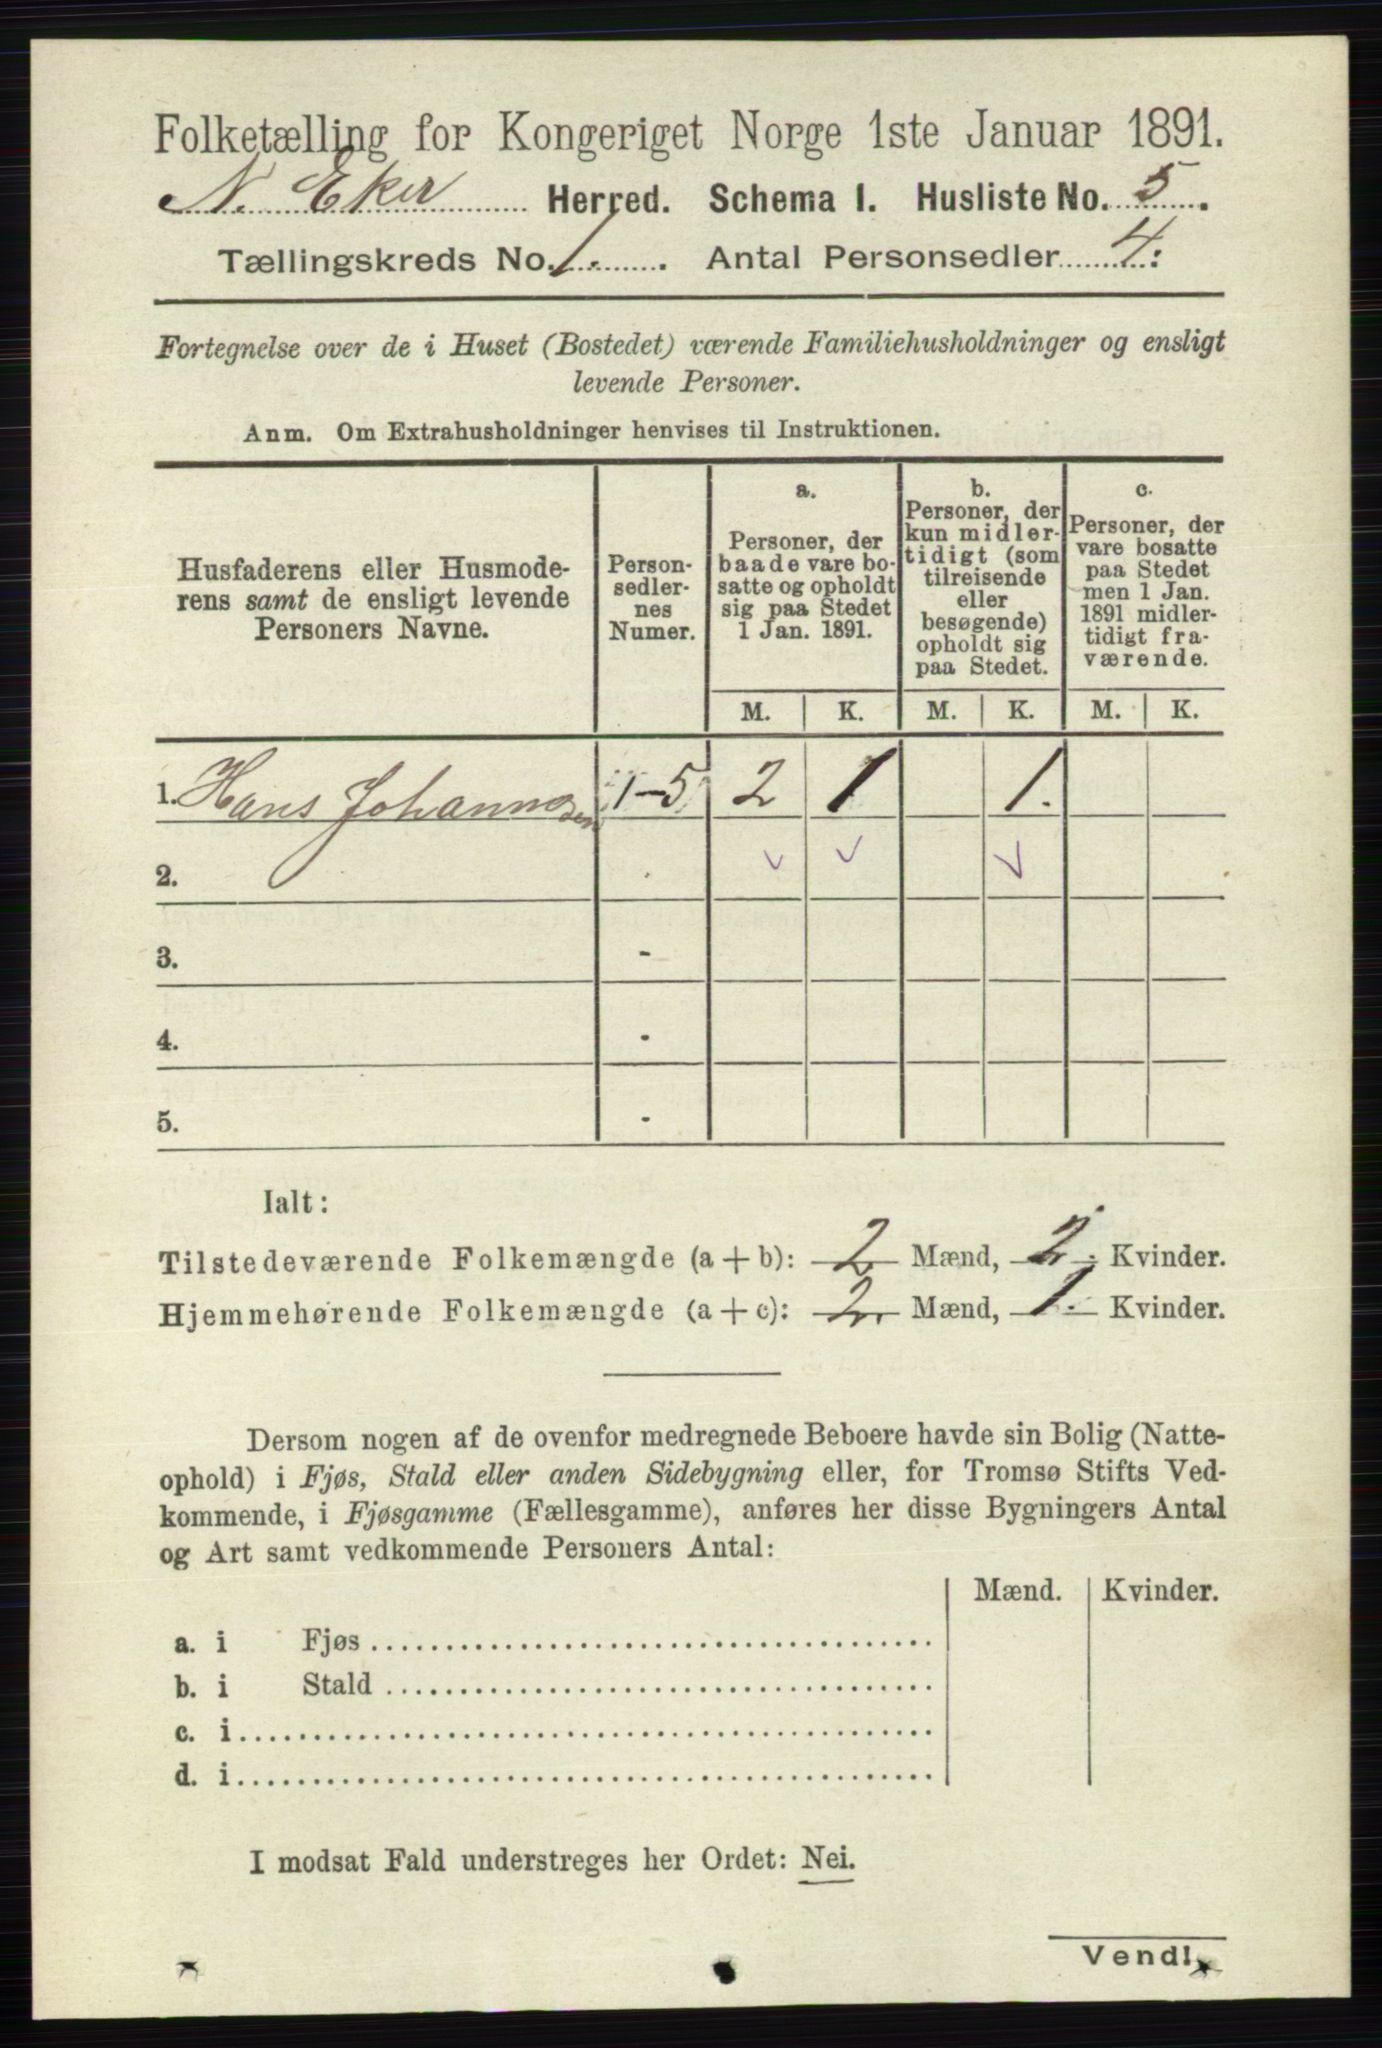 Folketælling for Kongeriget Norge 1ste Januar 1891.
N. Eker Herred. Schema I. Husliste No. 5.
Tællingskreds No. 1. Antal Personsedler 4.
Fortegnelse over de i Huset (Bostedet) værende Familiehusholdninger og ensligt
levende Personer.
Anm. Om Extrahusholdninger henvises til Instruktionen.
Husfaderens eller Husmode-
rens samt de ensligt levende
Personers Navne.
Person-
sedler-
nes
Numer.
a.
Personer, der
baade vare bo-
satte og opholdt
sig paa Stedet
1 Jan. 1891.
b.
Personer, der
kun midler-
tidigt (som
tilreisende
eller
besøgende)
opholdt sig
paa Stedet.
c.
Personer, der
vare bosatte
paa Stedet
men 1 Jan.
1891 midler-
tidigt fra-
værende.
M. K. M. K. M. K.
1. Hans Johannesen 1-5 2 1 1.
2.
3. -
4. -
5. -
Ialt:
Tilstedeværende Folkemængde (a + b): 2 Mænd, 2. Kvinder.
Hjemmehørende Folkemængde (a + c): 2. Mænd, 1. Kvinder.
Dersom nogen af de ovenfor medregnede Beboere havde sin Bolig (Natte-
ophold) i Fjøs, Stald eller anden Sidebygning eller, for Tromsø Stifts Ved-
kommende, i Fjøsgamme (Fællesgamme), anføres her disse Bygningers Antal
og Art samt vedkommende Personers Antal:
Mænd. Kvinder.
a. i Fjøs
b. i Stald
c. i
d. i
I modsat Fald understreges her Ordet: Nei.
Vend!